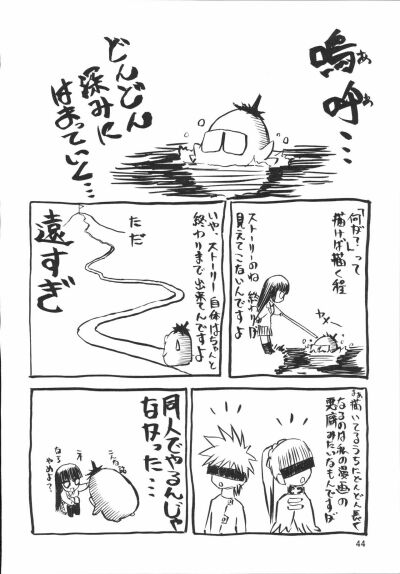 嗚呼…
ああ
どんどん
深みに
はまっていく…
「何が？」って
描けば描く程
ストーリーのね終わりが
見えてこないんですよ
ヤメ〜
いや、ストーリー自体はちゃんと
終わりまで出来てんですよ
ただ
遠すぎ
描いてるうちにどんどん長く
なるのは私の漫画の
悪癖みたいなもんですが
同人でやるんじゃ
なかった…
なら
やめよ？
44